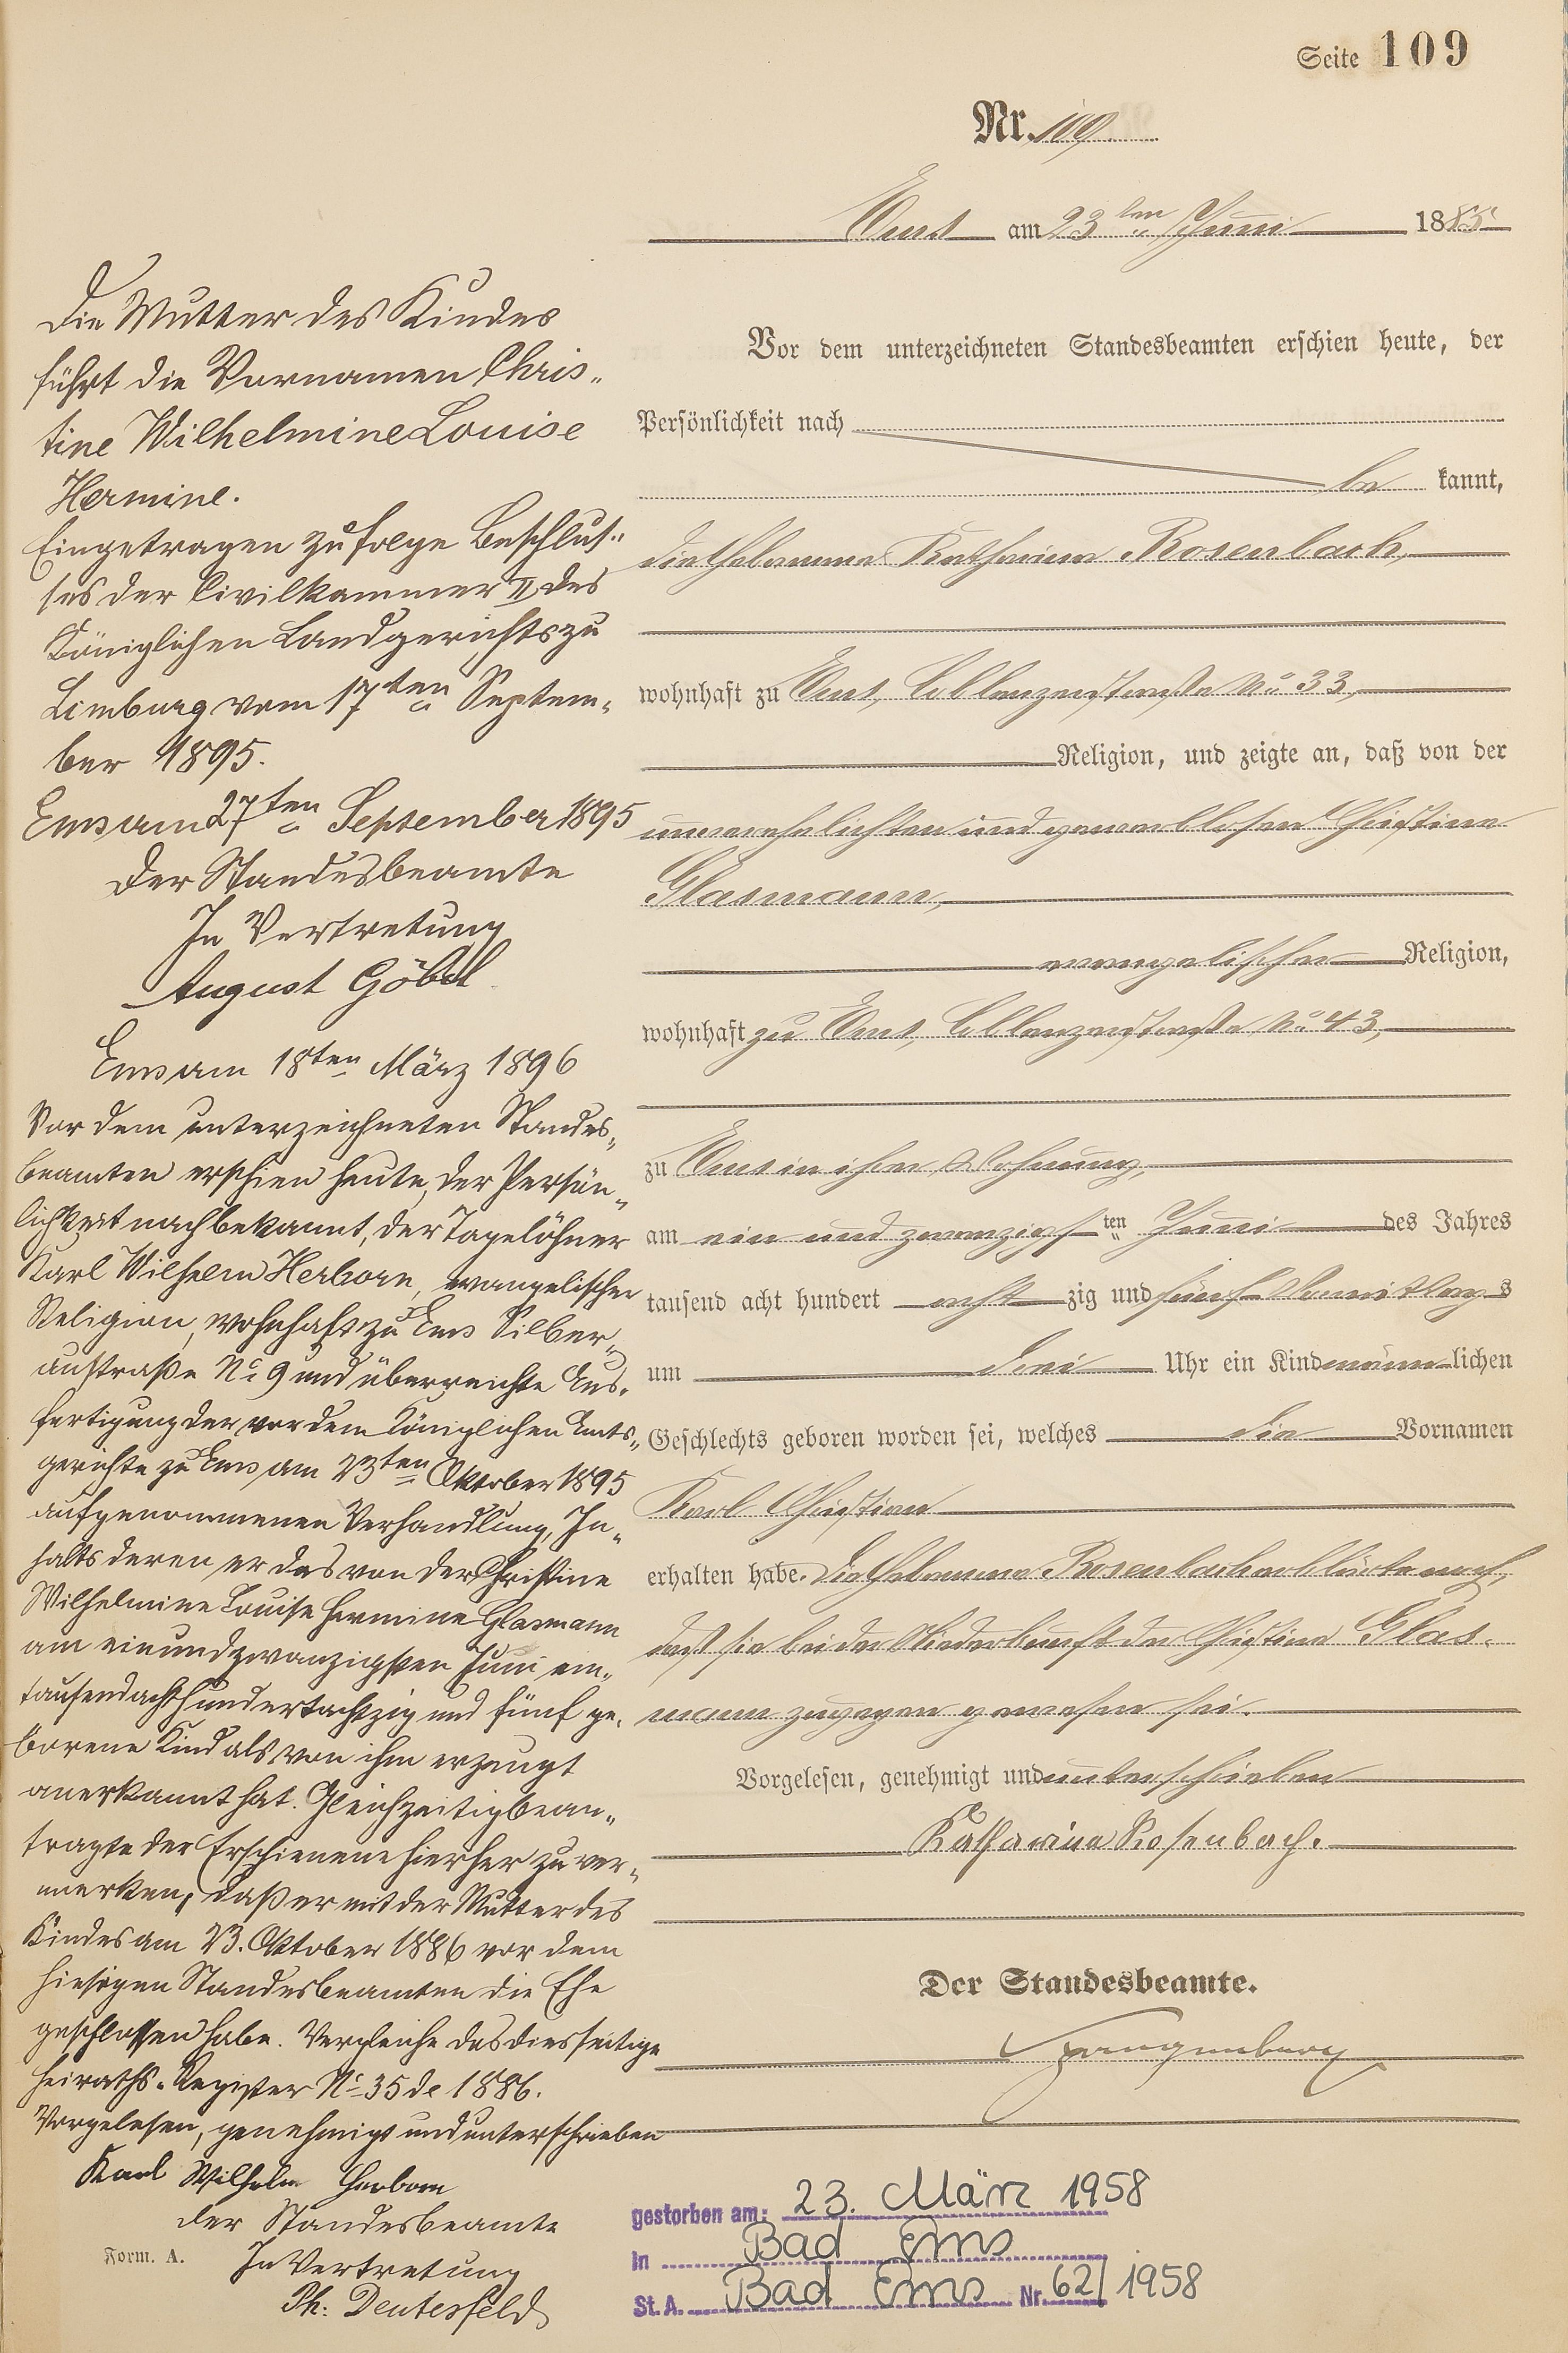 Seite 109
Nr. 109.
Ems am 23ten Juni 1885
Vor dem unterzeichneten Standesbeamten erschien heute, der
Persönlichkeit nach
be kannt,
die Hebamme Katharina Rosenbach,
wohnhaft zu Ems, Coblenzerstraße No 33,
Religion, und zeigte an, daß von der
unverehelichten und gewerblosen Christine
Glasmann,
evangelischer Religion,
wohnhaft zu Ems, Coblenzerstraße No 43,
zu Ems in ihrer Wohnung,
am ein und zwanzigsten Juni des Jahres
tausend acht hundert acht zig und fünf Vormittags
um drei Uhr ein Kind männlichen
Geschlechts geboren worden sei, welches die Vornamen
Karl Christian
erhalten habe. Die Hebamme Rosenbach erklärte noch,
daß sie bei der Niederkunft der Christine Glas-
mann zugegen gewesen sei.
Vorgelesen, genehmigt und unterschrieben
Katharina Rosenbach.
Der Standesbeamte.
Spangenberg
Die Mutter des Kindes
führt die Vornamen Chris-
tine Wilhelmine Louise
Hermine.
Eingetragen zufolge Beschlus-
ses der Civilkammer II des
Königlichen Landgerichts zu
Limburg vom 17ten Septem-
ber 1895.
Ems am 27ten September 1895
Der Standesbeamte
In Vertretung
August Göbel
Ems am 18ten März 1896
Vor dem unterzeichneten Standes-
beamten erschien heute, der Persön-
lichkeit nach bekannt, der Tagelöhner
Karl Wilhelm Herborn, evangelischer
Religion, wohnhaft zu Ems Silber-
austraße No 9 und überreichte Aus-
fertigung der vor dem Königlichen Amts-
gerichte zu Ems am 23ten Oktober 1895
aufgenommenen Verhandlung, In-
halts deren er das von der Christine
Wilhelmine Louise Hermine Glasmann
am einundzwanzigsten Juni ein-
tausendachthundertachtzig und fünf ge-
borene Kind als von ihm erzeugt
anerkannt hat. Gleichzeitig bean-
tragte der Erschienene hierher zu ver-
merken, daß er mit der Mutter des
Kindes am 23. Oktober 1886 vor dem
hiesigen Standesbeamten die Ehe
geschlossen habe. Vergleiche das diesseitige
Heiraths-Register No 35 de 1886.
Vorgelesen, genehmigt und unterschrieben
Karl Wilhelm Herborn
Der Standesbeamte
In Vertretung
Ph. Deutesfeld
Form. A.
gestorben am: 23. März 1958
in Bad Ems
St. A. Bad Ems Nr. 62/1958